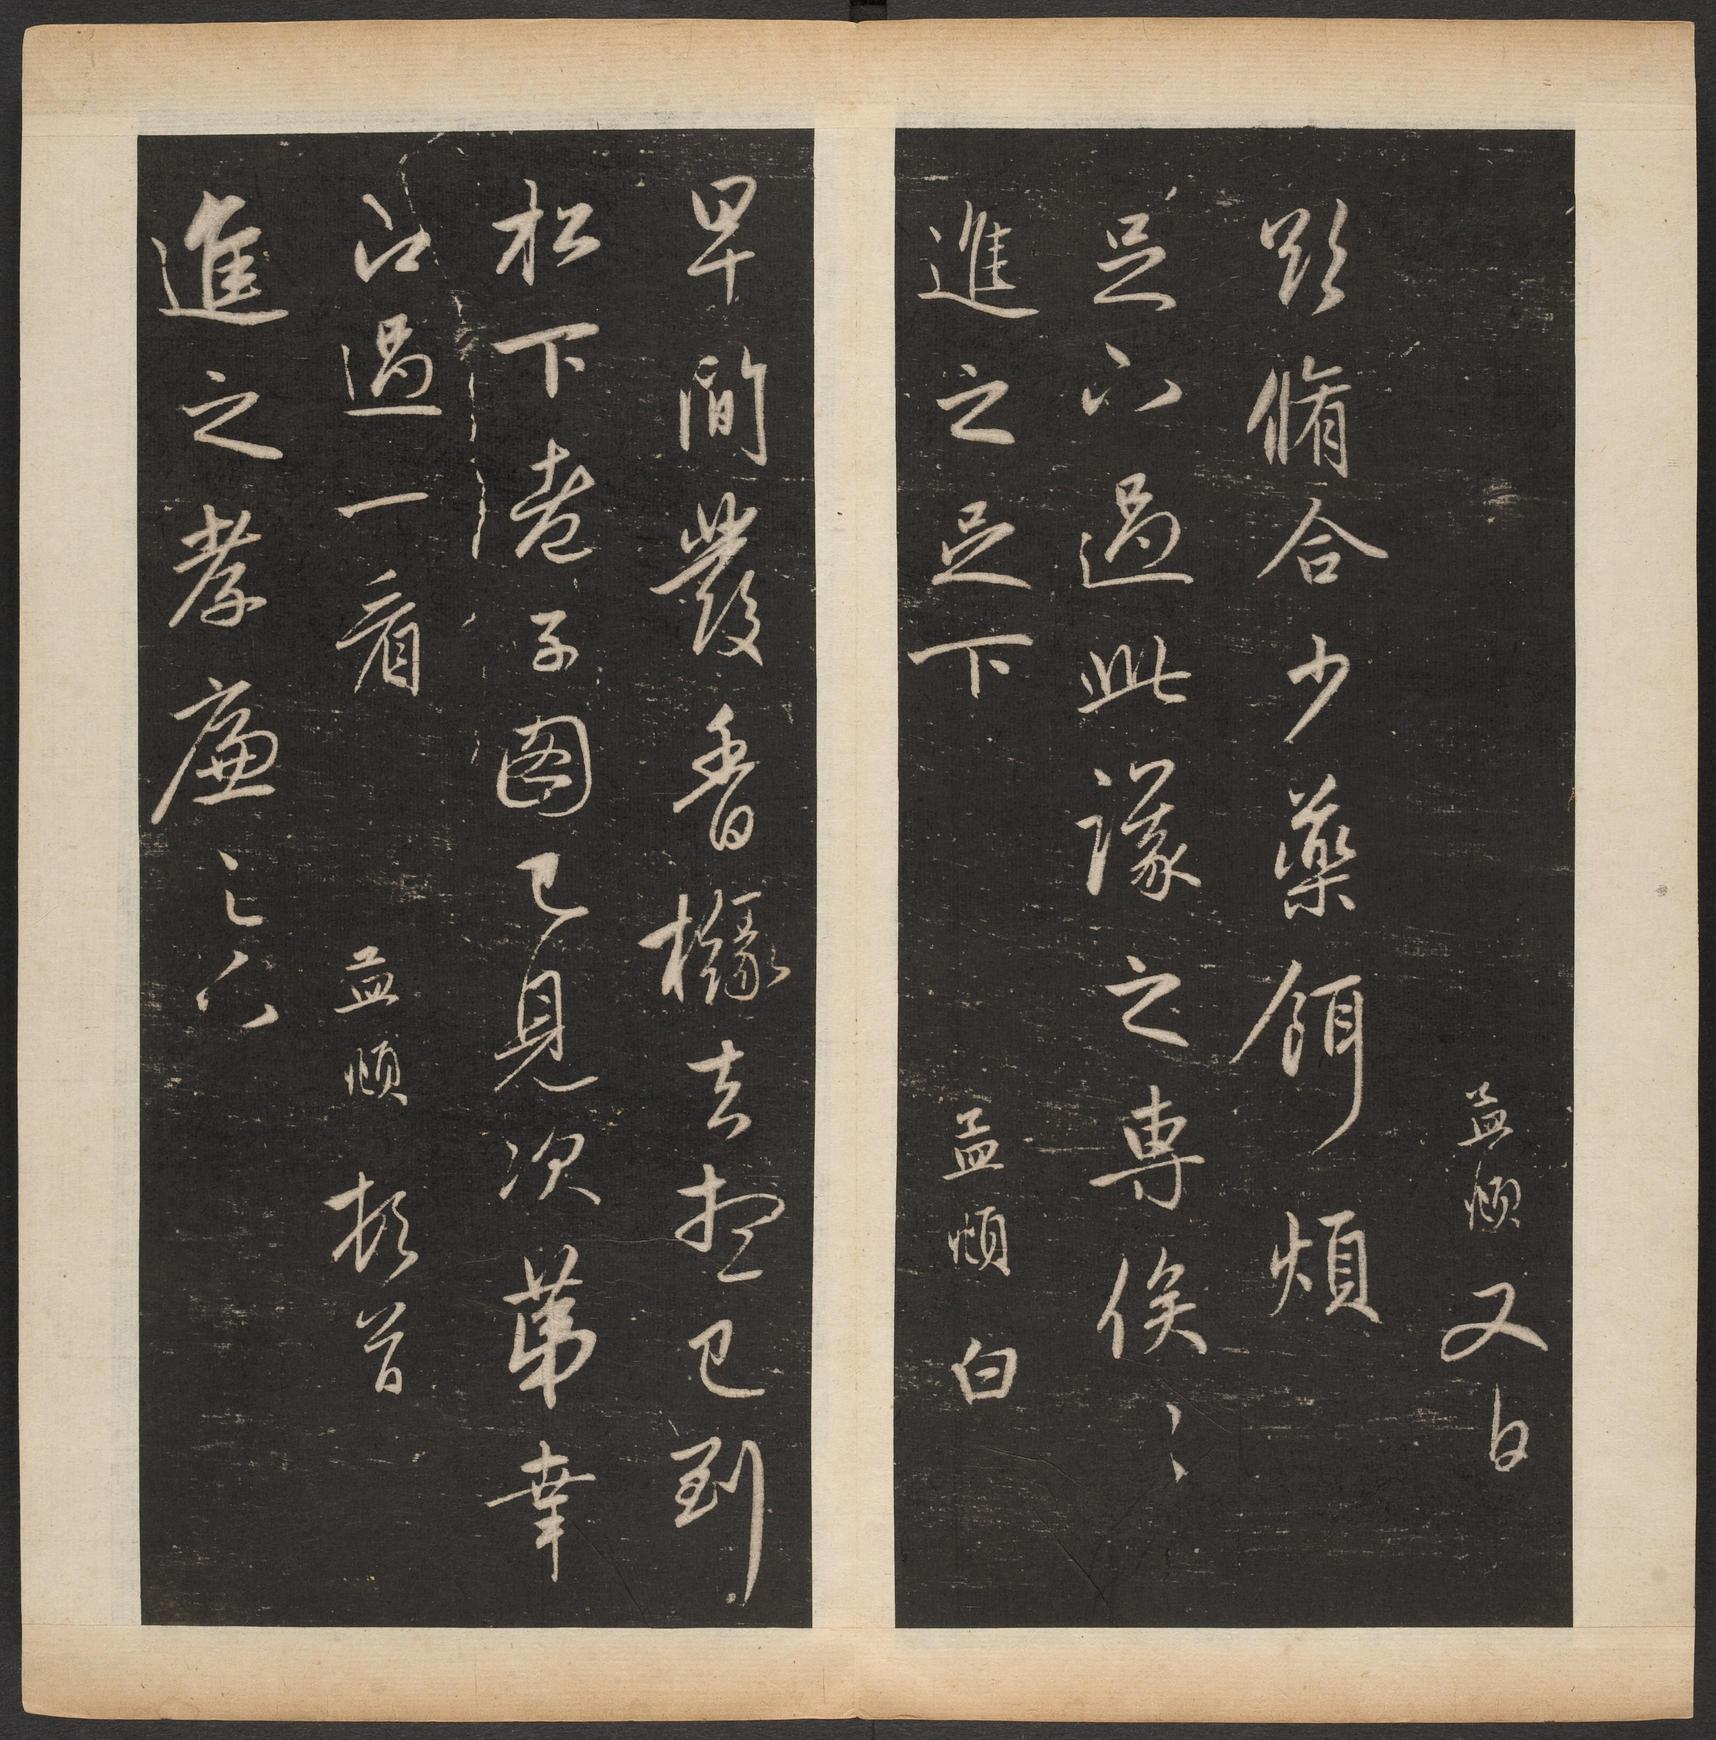 孟頫又白
欲脩合少藥餌煩
足下過此議之專俟〻
進之足下 孟頫白
早間發香櫞去想已到
松下老子圖已見次第幸
過一看 孟頫頓首
進之孝廉足下